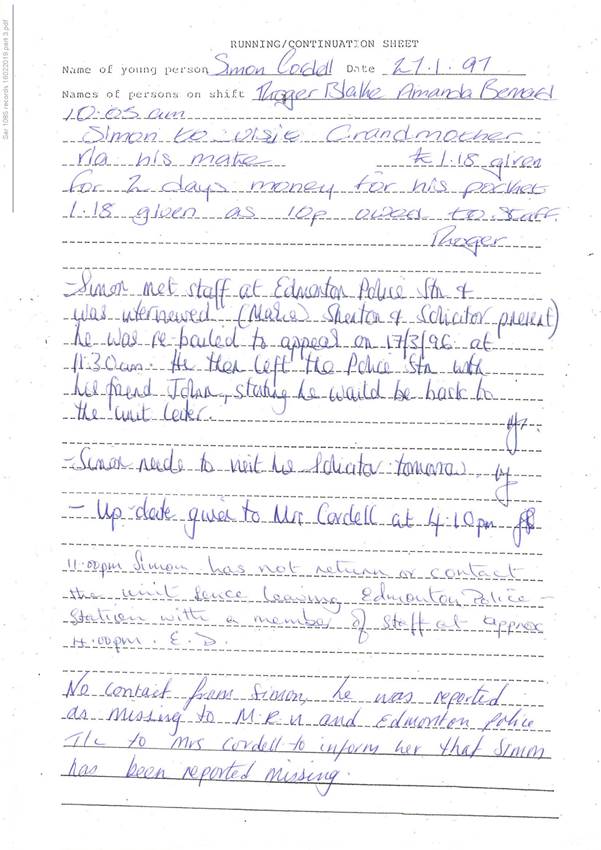 Sar 1085 records 16022019 part 3.pdf
RUNNING/CONTINUATION SHEET
Name of young person Simon Cordell Date 27.1.97
Names of persons on shift Rhoger Blake Amanda
10.05 am
Simon to visit Grandmother
via his mate £1.18 given
for 2 days money for his pocket
1.18 given as 10p owed to staff.
Rhoger
- Simon met staff at Edmonton Police Stn &
was interviewed (Marie Shenton & Solicitor present)
he was re-bailed to appeal on 17/3/96 at
11.30am. He then left the Police Stn with
his friend John, stating he would be back to
the unit later.
- Simon needs to visit his Solicitor tomorrow.
- Up-date given to Mrs Cordell at 4.10pm
11.00pm Simon has not return or contact
the unit sence leaving Edmonton Police -
Station with a member of staff at approx
4.00pm. E.D.
No contact from Simon, he was reported
as missing to M.P.U and Edmonton police
T/c to Mrs Cordell to inform her that Simon
has been reported missing.